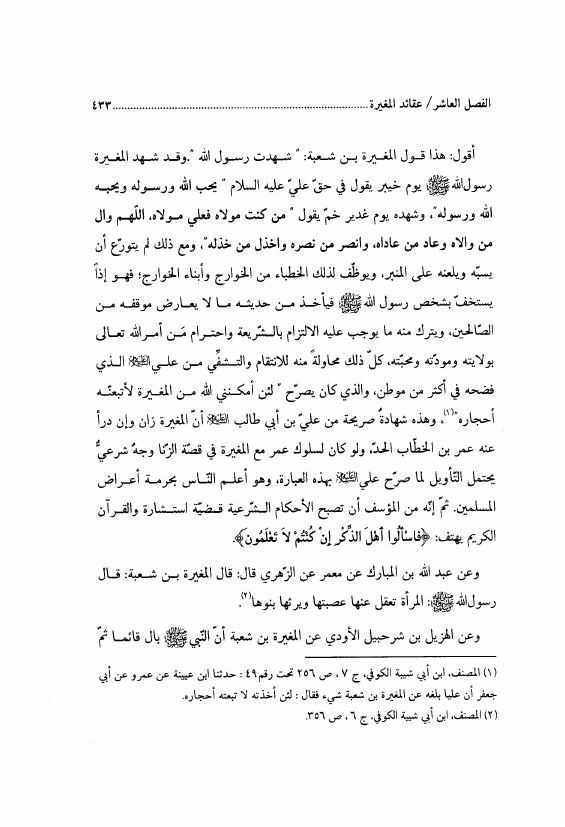 الفصل العاشر/ عقائد المغيرة ........................................................................................ ٤٣٣
أقول: هذا قول المغيرة بن شعبة: " شهدت رسول الله ".وقد شهد المغيرة
رسول الله ﷺ يوم خيبر يقول في حقّ عليّ عليه السلام " يحب الله ورسوله ويحبه
الله ورسوله"، وشهده يوم غدير خمّ يقول " من كنت مولاه فعلي مولاه، اللّهم وال
من والاه وعاد من عاداه، وانصر من نصره واخذل من خذله"، ومع ذلك لم يتورّع أن
يسبّه ويلعنه على المنبر، ويوظّف لذلك الخطباء من الخوارج وأبناء الخوارج؛ فهو إذاً
يستخفّ بشخص رسول الله ﷺ فيأخذ من حديثه ما لا يعارض موقفه من
الصّالحين، ويترك منه ما يوجب عليه الالتزام بالشّريعة واحترام مَن أمر الله تعالى
بولايته ومودّته ومحبّته، كلّ ذلك محاولةً منه للانتقام والتشفّي من علي عليه السلام الذي
فضحه في أكثر من موطن، والذي كان يصرّح " لئن أمكنني الله من المغيرة لأتبعنّه
أحجاره"(١)، وهذه شهادةٌ صريحة من عليّ بن أبي طالب عليه السلام أنّ المغيرة زان وإن درأ
عنه عمر بن الخطّاب الحدّ، ولو كان لسلوك عمر مع المغيرة في قصّة الزّنا وجهٌ شرعيٌّ
يحتمل التّأويل لما صرّح علي عليه السلام بهذه العبارة، وهو أعلم النّاس بحرمة أعراض
المسلمين. ثمّ إنّه من المؤسف أن تصبح الأحكام الشّرعية قضيّة استشارة والقرآن
الكريم يهتف: ﴿فَاسْأَلُوا أَهْلَ الذِّكْرِ إِنْ كُنْتُمْ لاَ تَعْلَمُونَ﴾.
وعن عبد الله بن المبارك عن معمر عن الزّهري قال: قال المغيرة بن شعبة: قال
رسول الله ﷺ: المرأة تعقل عنها عصبتها ويرثها بنوها(٢).
وعن الهزيل بن شرحبيل الأودي عن المغيرة بن شعبة أنّ النّبي ﷺ بال قائما ثمّ
(١) المصنف، ابن أبي شيبة الكوفي، ج ٧ ، ص ٢٥٦ تحت رقم ٤٩ : حدثنا ابن عيينة عن عمرو عن أبي
جعفر أن عليا بلغه عن المغيرة بن شعبة شيء فقال : لئن أخذته لا تبعته أحجاره.
(٢) المصنف، ابن أبي شيبة الكوفي، ج ٦ ، ص ٣٥٦.